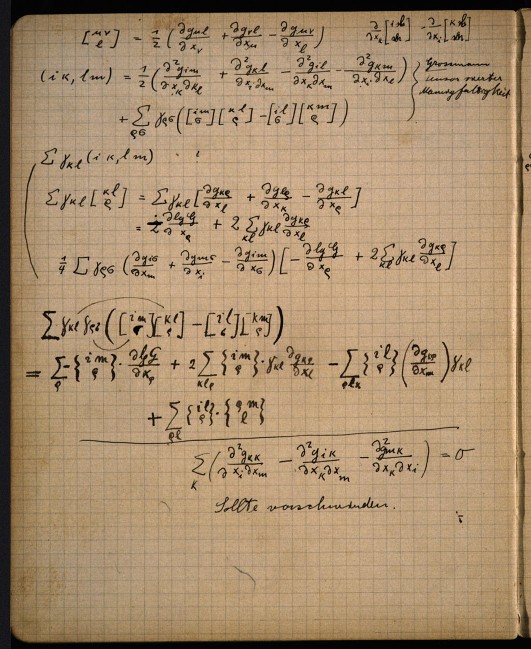 [μν l] = 1/2 (∂gμl/∂xν + ∂gνl/∂xμ − ∂gμν/∂xl) ∂/∂xk [i l] − ∂/∂xi [κ l]
(iκ, lm) = 1/2 (∂²gim/∂xκ∂xl + ∂²gκl/∂xi∂xm − ∂²gil/∂xκ∂xm − ∂²gκm/∂xi∂xl) } Grossmann
Tensor vierter
Mannigfaltigkeit
+ Σρσ γρσ ([im σ][κl ρ] − [il σ][κm ρ])
Σ γκl (iκ, lm)
Σ γκl [κl ρ] = Σ γκl [∂gκρ/∂xl + ∂glρ/∂xκ − ∂gκl/∂xρ]
= − ∂lgG/∂xρ + 2 Σκl γκl ∂gκρ/∂xl
1/4 Σ γρσ (∂giσ/∂xm + ∂gmσ/∂xi − ∂gim/∂xσ) [− ∂lgG/∂xρ + 2 Σκl γκl ∂gκρ/∂xl]
Σ γκl γρσ ([im σ][κl ρ] − [il σ][κm ρ])
= Σρ −{im ρ} · ∂lgG/∂xρ + 2 Σκlρ {im ρ} · γκl ∂gκρ/∂xl − Σρlκ {il ρ} (∂gκρ/∂xm) γκl
+ Σρl {il ρ} · {ρm l}
Σκ (∂²gκκ/∂xi∂xm − ∂²giκ/∂xκ∂xm − ∂²gmκ/∂xκ∂xi) = 0
Sollte verschwinden.